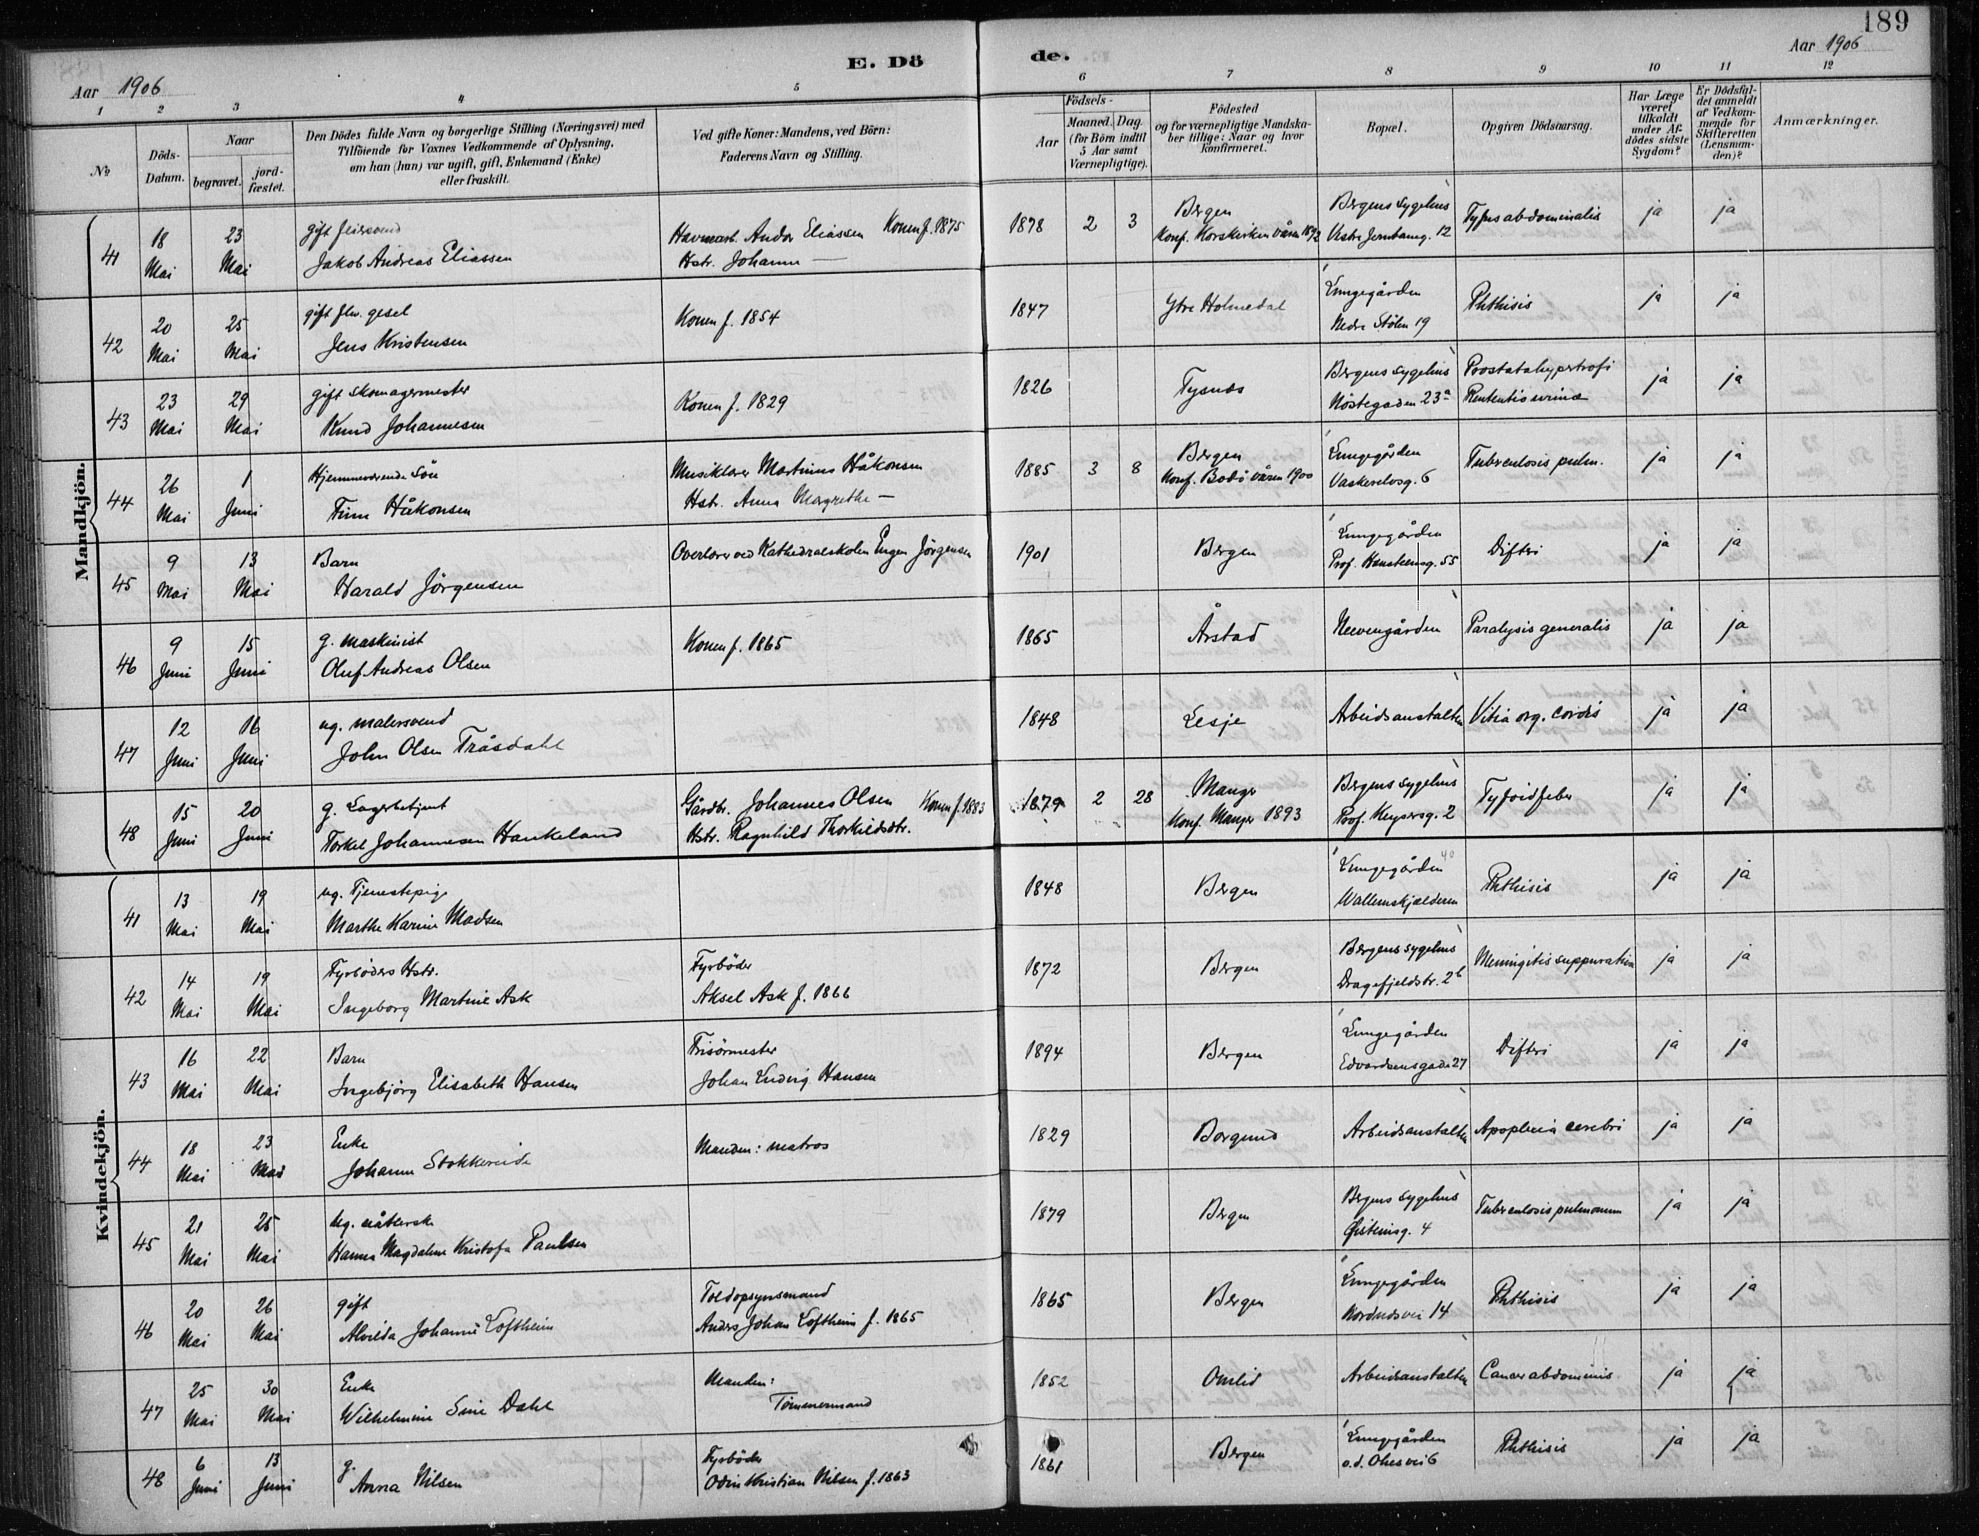 189
Aar 1906
E. Dö
de.
Aar 1906
1 2 3 4 5 6 7 8 9 10 11 12
№
Döds-Datum.
Naar
begravet.
jord-fæstet.
Den Dödes fulde Navn og borgerlige Stilling (Næringsvei) med
Tilföiende for Voxnes Vedkommende af Oplysning,
om han (hun) var ugift, gift, Enkemand (Enke)
eller fraskilt.
Ved gifte Koner: Mandens, ved Börn:
Faderens Navn og Stilling.
Födsels-
Aar
Maaned. Dag.
(for Börn indtil
5 Aar samt
Værnepligtige).
Födested
og for værnepligtige Mandska-
ber tillige: Naar og hvor
konfirmeret.
Bopæl.
Opgiven Dödsaarsag.
Har Læge
været
tilkaldt
under Af-
dödes sidste
Sygdom?
Er Dödsfal-
det anmeldt
af Vedkom-
mende for
Skifteretten
(Lensman-
den)?
Anmærkninger.
Mandkjön.
41 18 Mai 23 Mai
gift feiersvend
Jakob Andreas Eliassen
Havnearb. Andor Eliassen Konen f. 1875
Hstr. Johanne —
1878 2 3
Bergen
Konf. Korskirken våren 1892
Bergens sygehus
Vestre 12
Tyfus abdominalis
ja ja
42 20 Mai 25 Mai
gift gesel
Jens Kristensen
Konen f. 1854
1847
Ytre Holmedal
Lungegården
Nedre Stølen 19
Phthisis
ja ja
43 23 Mai 29 Mai
gift skomagermester
Knud Johannesen
Konen f. 1829
1826
Tysnæs
Bergens sygehus
Nøstegaden 23a
Prostatahypertrofi
Retentio urinæ
ja ja
44 26 Mai 1 Juni
Hjemmeværende Søn
Finn Håkonsen
Musiklærer Martinus Håkonsen
Hstr. Anna Magrethe —
1885 3 8
Bergen
Konf. Bodö våren 1900
Lungegården
Vaskerelvsg. 6
Tuberculosis pulm.
ja ja
45 9 Mai 13 Mai
Barn
Harald Jörgensen
Overlærer ved Kathedralskolen Eugen Jörgensen
1901
Bergen
Lungegården
Prof. Hansteensg. 55
Difteri
ja ja
46 9 Juni 15 Juni
g. maskinist
Oluf Andreas Olsen
Konen f. 1865
1865
Årstad
Neevengården
Paralysis generalis
ja ja
47 12 Juni 16 Juni
ug. malersvend
John Olsen Tråsdahl
1848
Lesje
Arbeidsanstalten
Vitia org. cordis
ja ja
48 15 Juni 20 Juni
g. Lagerbetjent
Torkel Johannesen Haukeland
Gårdbr. Johannes Olsen Konen f. 1883
Hstr. Ragnhild Thorkildsdtr.
1879 2 28
Manger
Konf. Manger 1893
Bergens sygehus
Prof. Keysersg. 2
Tyfoidfeber
ja ja
Kvindekjön.
41 13 Mai 19 Mai
ug. Tjenestepige
Marthe Karine Madsen
1848
Bergen
Lungegården
Wallemskjælderen
Phthisis
ja ja
42 14 Mai 19 Mai
Fyrbøders Hstr.
Ingeborg Martine Ask
Fyrbøder
Aksel Ask f. 1866
1872
Bergen
Bergens sygehus
Dragefjeldstr. 2b
Meningitis suppurativa
ja ja
43 16 Mai 22 Mai
Barn
Ingebjörg Elisabeth Hansen
Frisörmester
Johan Ludvig Hansen
1894
Bergen
Lungegården
Edvardsensgade 27
Difteri
ja ja
44 18 Mai 23 Mai
Enke
Johanne Stokkereide
Manden: matros
1829
Borgund
Arbeidsanstalten
Apoplexia cerebri
ja ja
45 21 Mai 25 Mai
ug. nåtlerske
Hanna Magdalene Kristofa Paulsen
1879
Bergen
Bergens sygehus
Øisteinsg. 4
Tuberculosis pulmonum
ja ja
46 20 Mai 26 Mai
gift
Alvilda Johanne Loftheim
Toldopsynsmand
Anders Johan Loftheim f. 1865
1865
Bergen
Lungegården
Nordnæsvei 14
Phthisis
ja ja
47 25 Mai 30 Mai
Enke
Wilhelmine Sine Dahl
Manden:
Tömmermand
1852
Omlid
Arbeidsanstalten
Cancer abdominis
ja ja
48 6 Juni 13 Juni
g.
Anna Nilsen
Fyrbøder
Odin Kristian Nilsen f. 1863
1861
Bergen
Lungegården
o.J. Olsesvei 6
Phthisis
ja ja